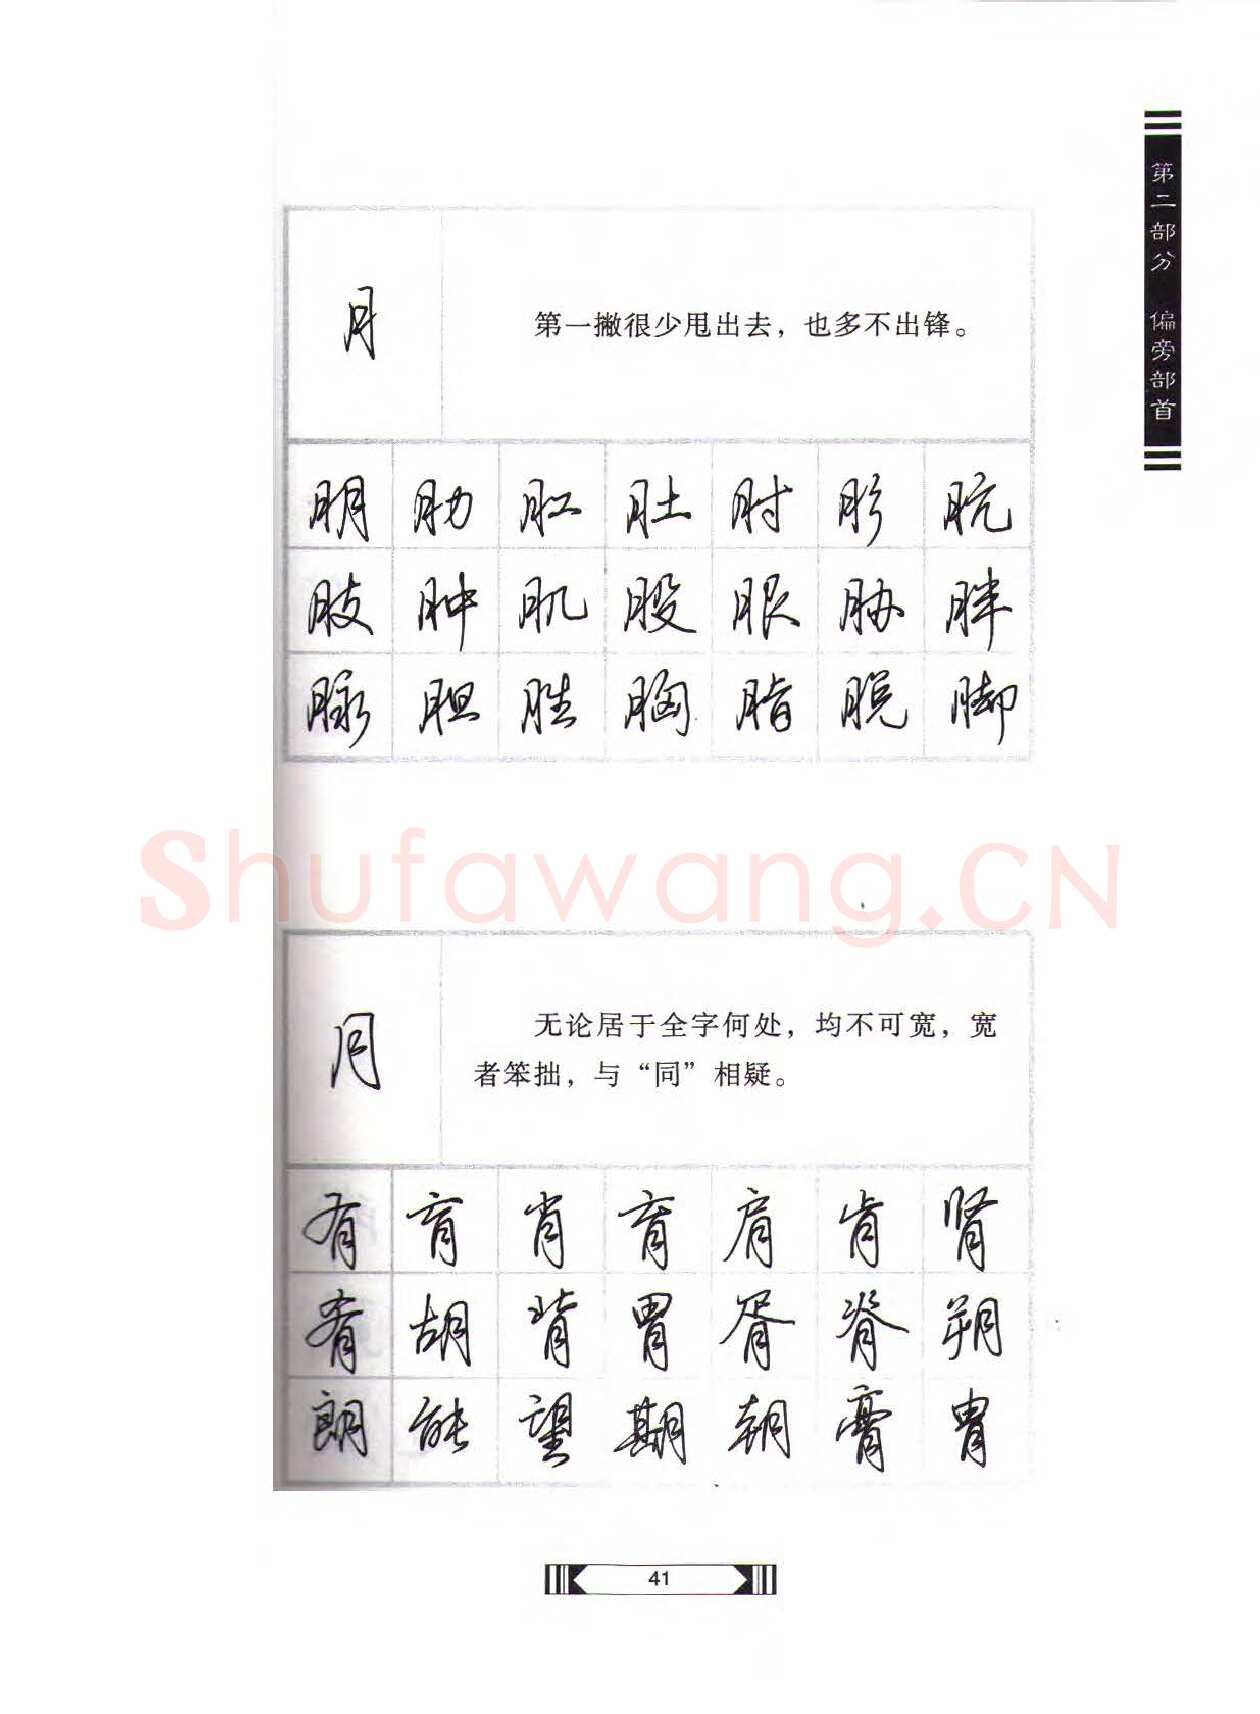 第二部分 偏旁部首
月
第一撇很少甩出去，也多不出锋。
朋肋肛肚肘肜肮
肢肿肌股服胁胖
脉胆胜胸脂脱脚
Shufawang.CN
月
无论居于全字何处，均不可宽，宽
者笨拙，与“同”相疑。
有肓肖育肩肯肾
肴胡背胃胥脊朔
朗能望期朝膏胄
41